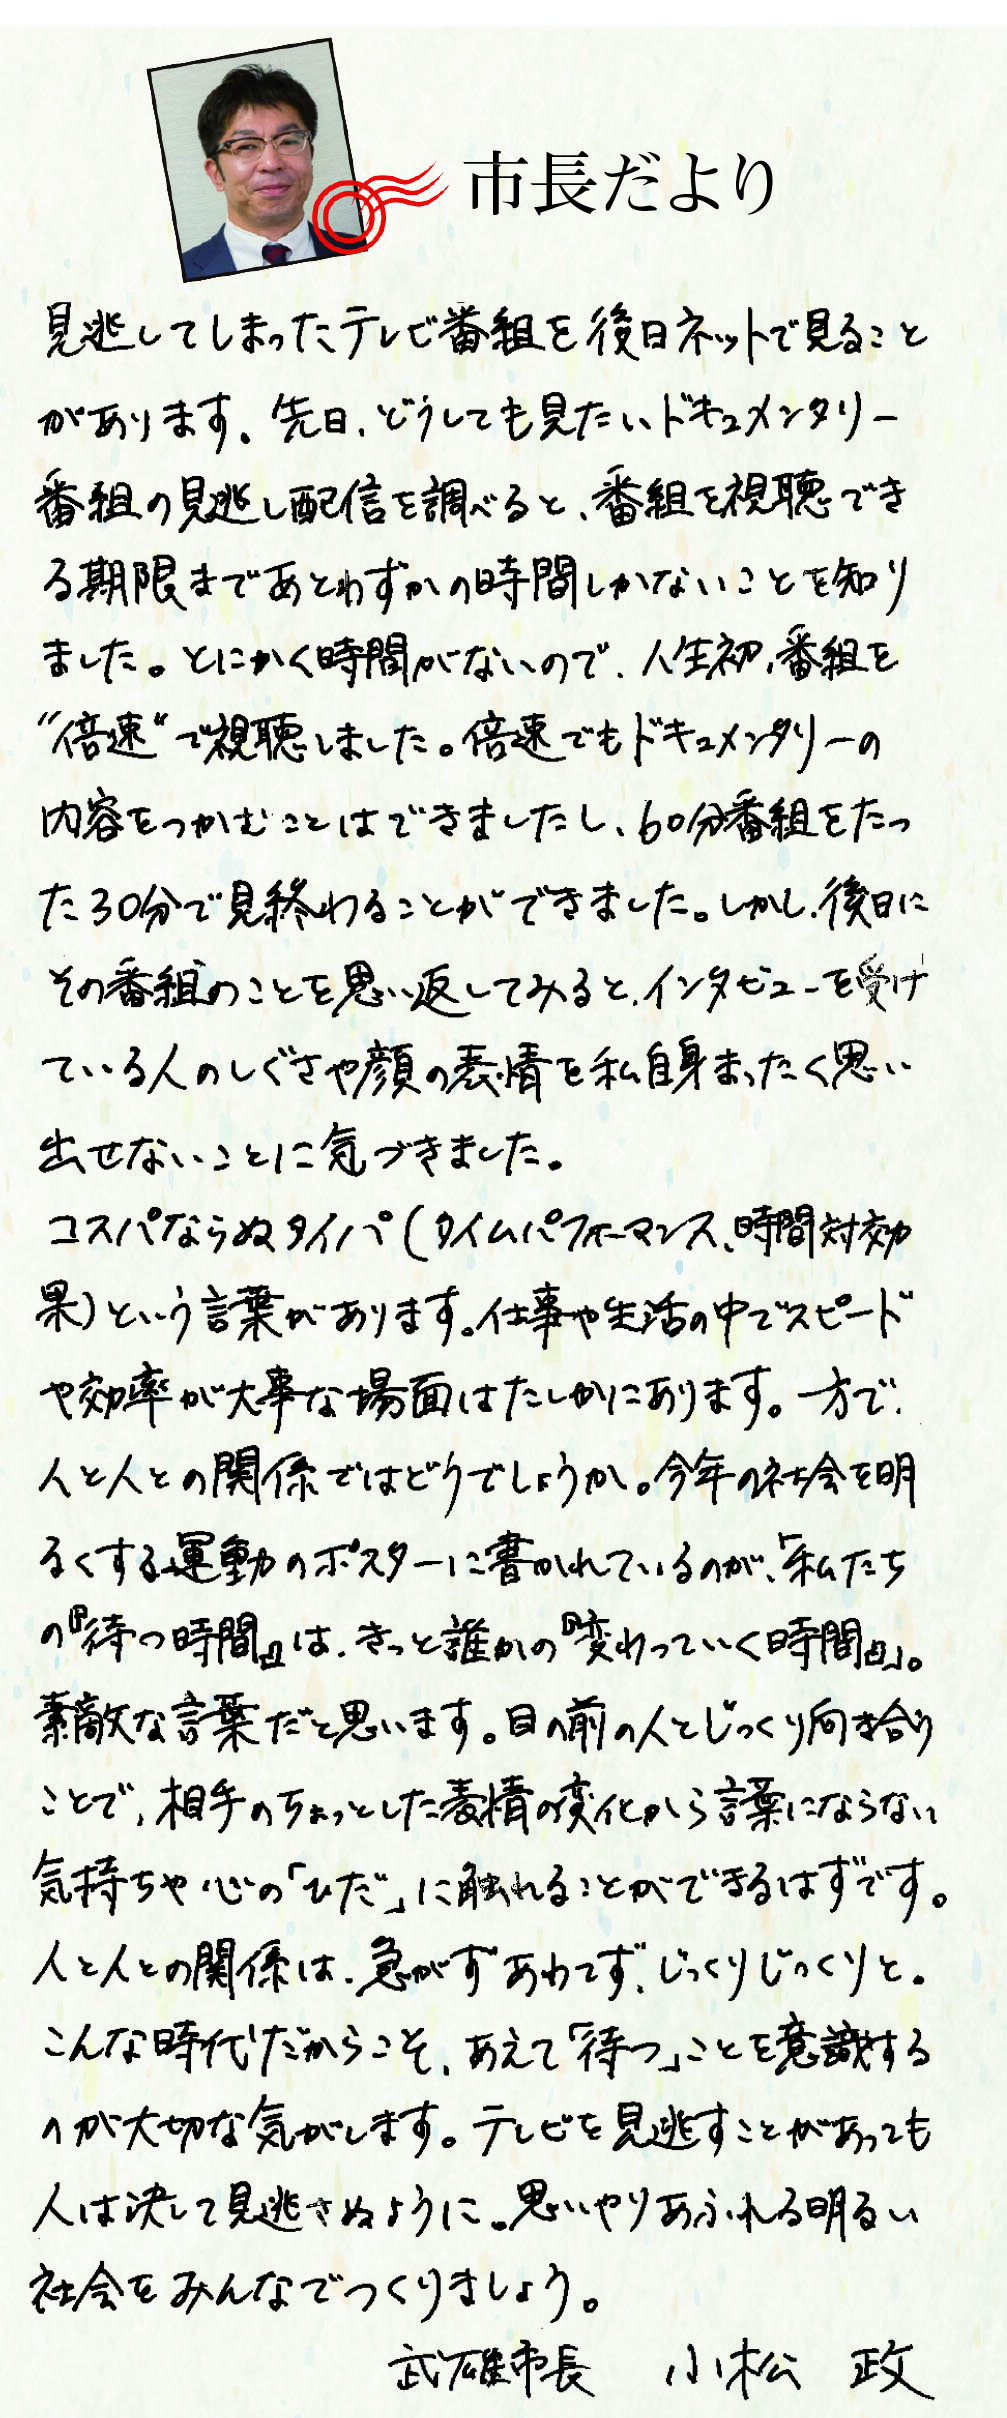 市長だより
見逃してしまったテレビ番組を後日ネットで見ること
があります。先日、どうしても見たいドキュメンタリー
番組の見逃し配信を調べると、番組を視聴でき
る期限まであとわずかの時間しかないことを知り
ました。とにかく時間がないので、人生初、番組を
〝倍速〟で視聴しました。倍速でもドキュメンタリーの
内容をつかむことはできましたし、60分番組をたっ
た30分で見終わることができました。しかし、後日に
その番組のことを思い返してみると、インタビューを受け
ている人のしぐさや顔の表情を私自身まったく思い
出せないことに気づきました。
コスパならぬタイパ(タイムパフォーマンス、時間対効
果)という言葉があります。仕事や生活の中でスピード
や効率が大事な場面はたしかにあります。一方で、
人と人との関係ではどうでしょうか。今年の社会を明
るくする運動のポスターに書かれているのが、「私たち
の『待つ時間』は、きっと誰かの『変わっていく時間』」。
素敵な言葉だと思います。目の前の人とじっくり向き合う
ことで、相手のちょっとした表情の変化から言葉にならない
気持ちや心の「ひだ」に触れることができるはずです。
人と人との関係は、急がずあわてず、じっくりじっくりと。
こんな時代だからこそ、あえて「待つ」ことを意識する
のが大切な気がします。テレビを見逃すことがあっても
人は決して見逃さぬように。思いやりあふれる明るい
社会をみんなでつくりましょう。
武雄市長 小松 政